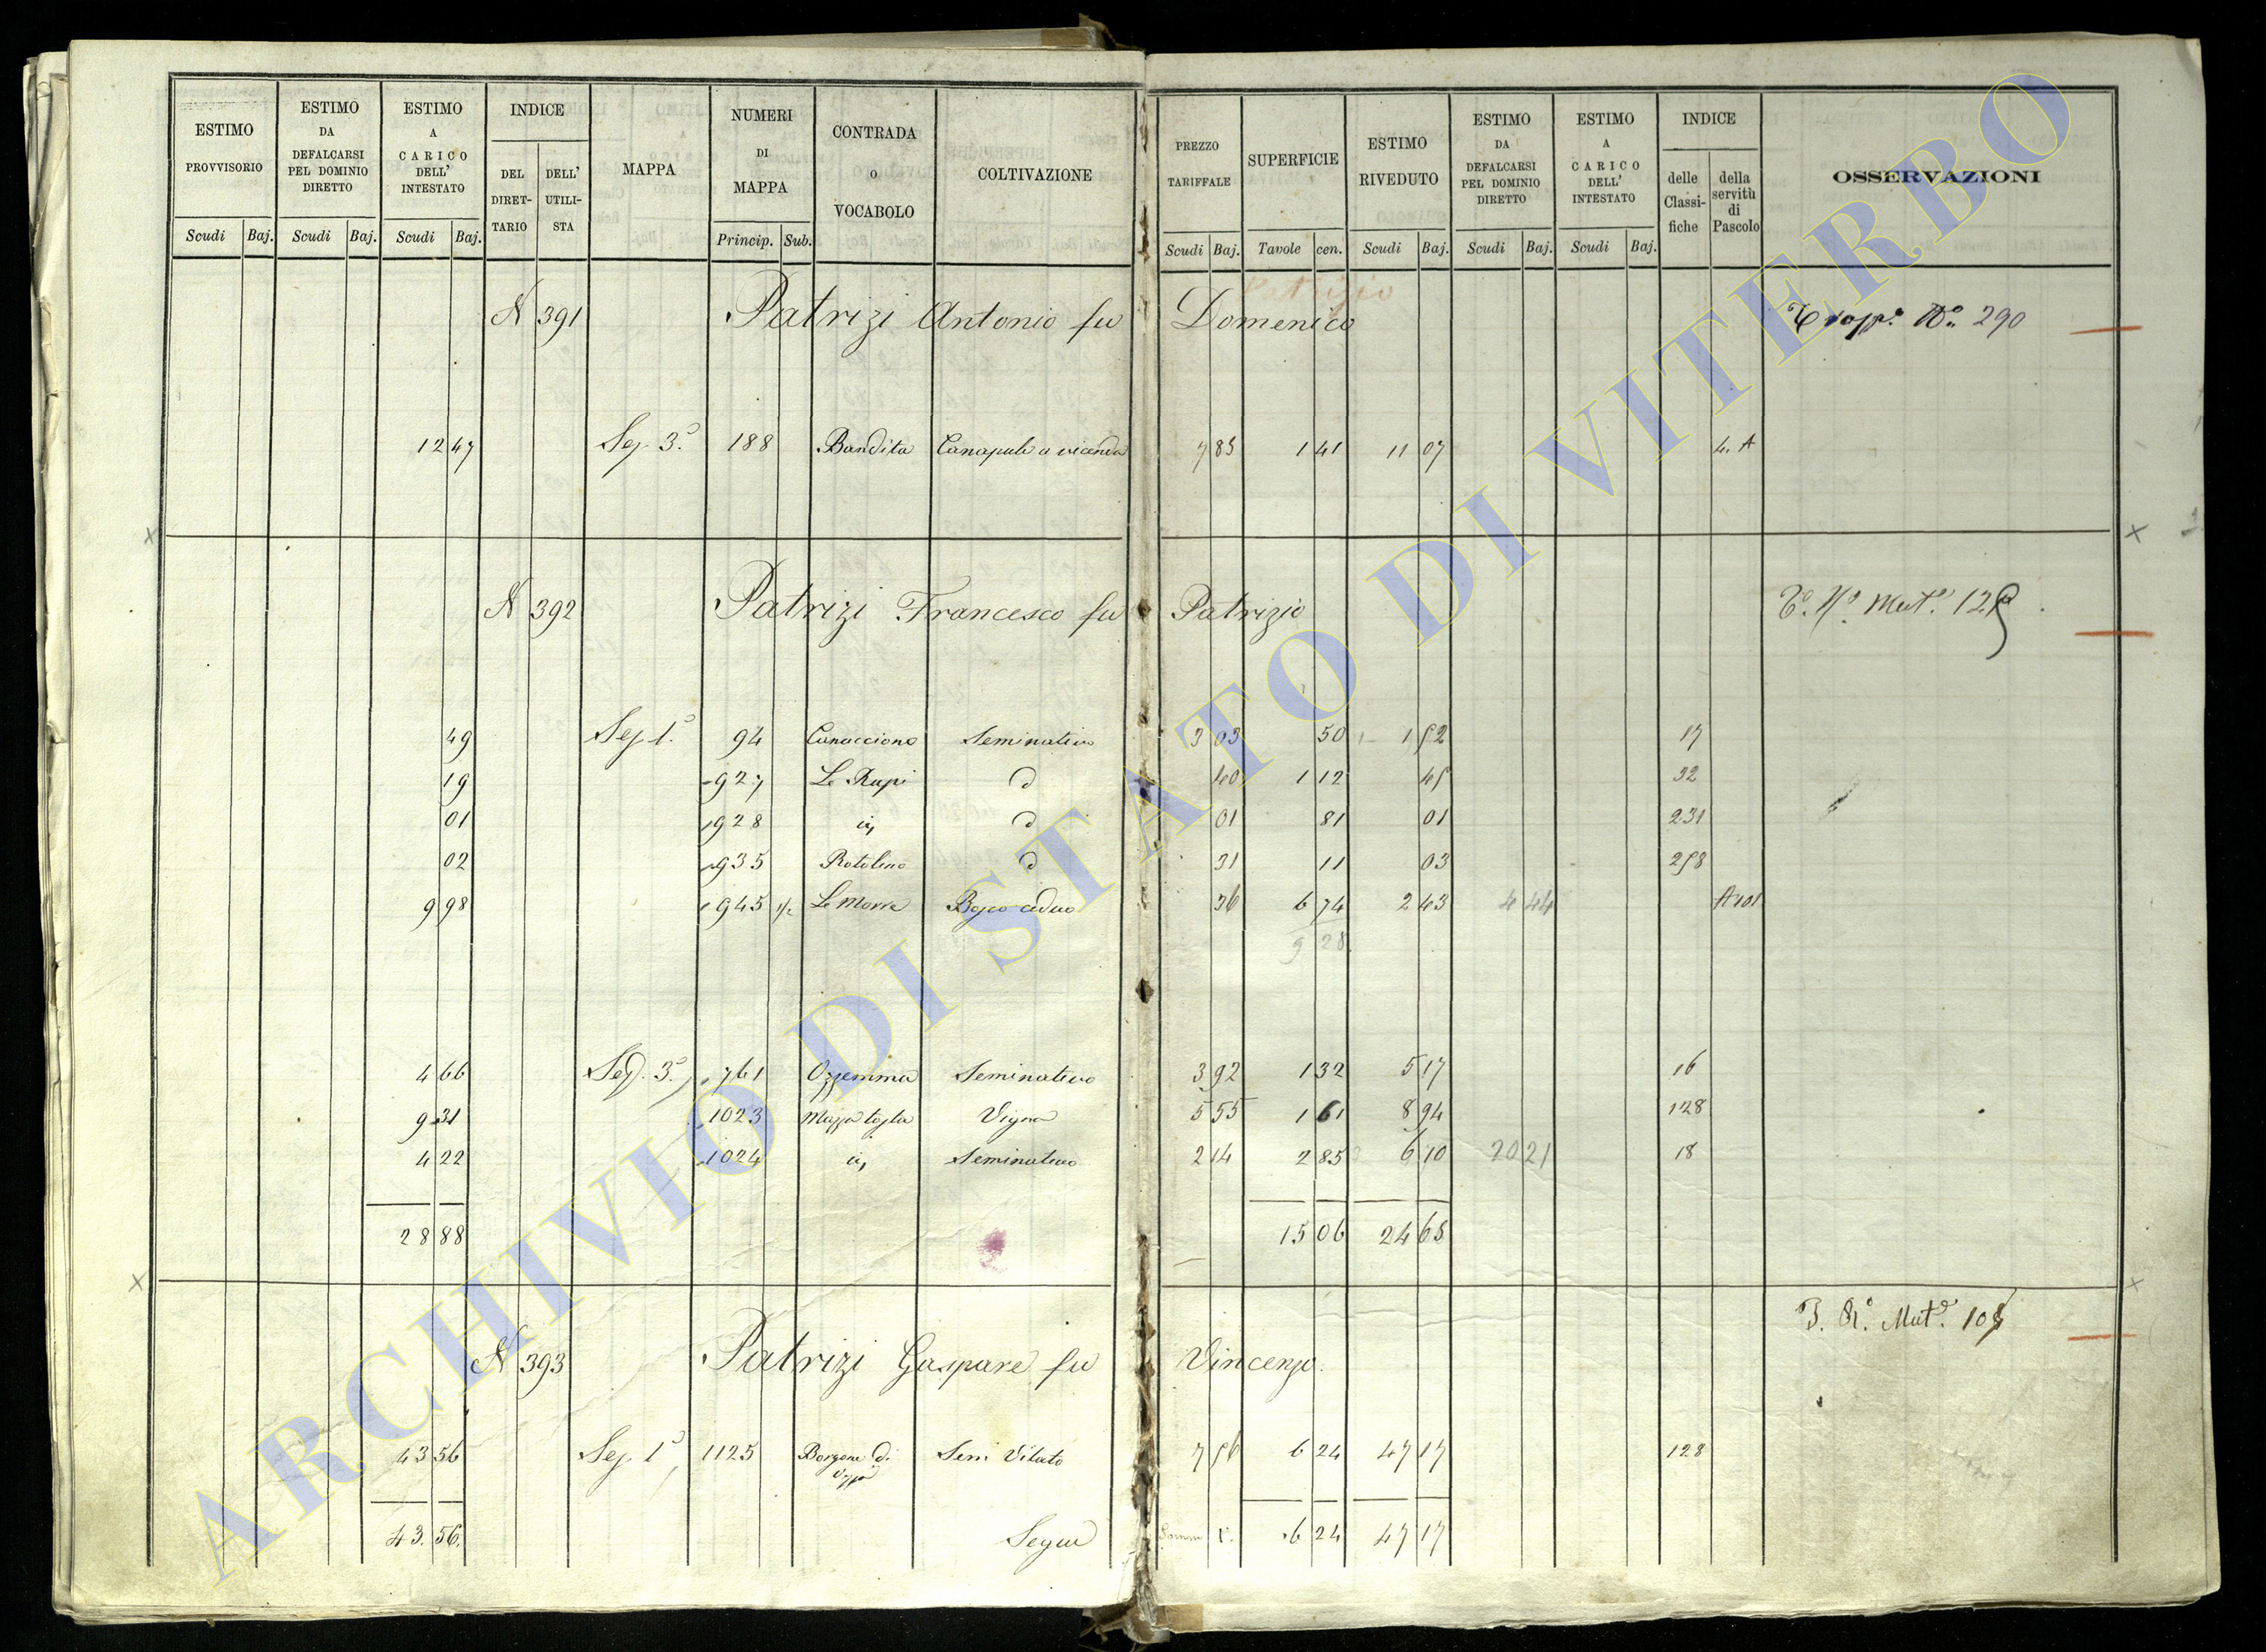 ESTIMO PROVVISORIO Scudi Baj.
ESTIMO DA DEFALCARSI PEL DOMINIO DIRETTO Scudi Baj.
ESTIMO A CARICO DELL' INTESTATO Scudi Baj.
INDICE DEL DIRETTARIO DELL' UTILISTA
MAPPA
NUMERI DI MAPPA Princip. Sub.
CONTRADA O VOCABOLO
COLTIVAZIONE
PREZZO TARIFFALE Scudi Baj.
SUPERFICIE Tavole cen.
ESTIMO RIVEDUTO Scudi Baj.
ESTIMO DA DEFALCARSI PEL DOMINIO DIRETTO Scudi Baj.
ESTIMO A CARICO DELL' INTESTATO Scudi Baj.
INDICE delle Classifiche della servitù di Pascolo
OSSERVAZIONI
Patrizio
N 391 Patrizi Antonio fu Domenico Nº 290
12 47 Sez. 3ª 188 Bandita Canapule a vicenda 7 85 1 41 11 07 4. A
N 392 Patrizi Francesco fu Patrizio Mutº 125
49 Sez. 1ª 94 Canaccione Seminativo 3 03 50 1 52 17
19 927 Le Rupi d 40 1 12 45 32
01 928 d 01 81 01 231
02 935 Rotolino d 31 11 03 258
9 98 945 1/2 Le Morre Bosco ceduo 36 6 74 2 43 4 44 A 101
9 28
4 66 Sez. 3ª 761 Ozzemma Seminativo 3 92 1 32 5 17 16
9 31 1023 Mazza tosta Vigna 5 55 1 61 8 94 128
4 22 1024 Seminativo 2 14 2 85 6 10 20 21 18
28 88 15 06 24 65
N 393 Patrizi Gaspare fu Vincenzo. Mutª
43 56 Sez. 1ª 1125 Borgone di Seni Vitato 7 56 6 24 47 17 128
43. 56. Segue 6 24 47 17
ARCHIVIO DI STATO DI VITERBO